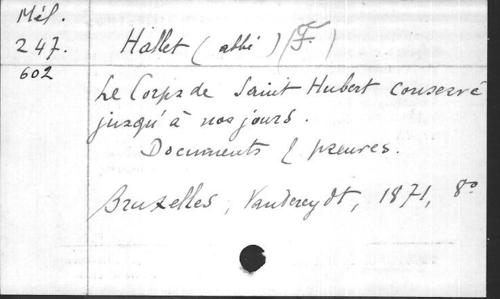 Mél.
247.
602
Hallet (abbé) (F.)
Le Corps de Saint Hubert conservé
jusqu'à nos jours.
Documents & preuves.
Bruxelles, Vandereydt, 1871, 8°